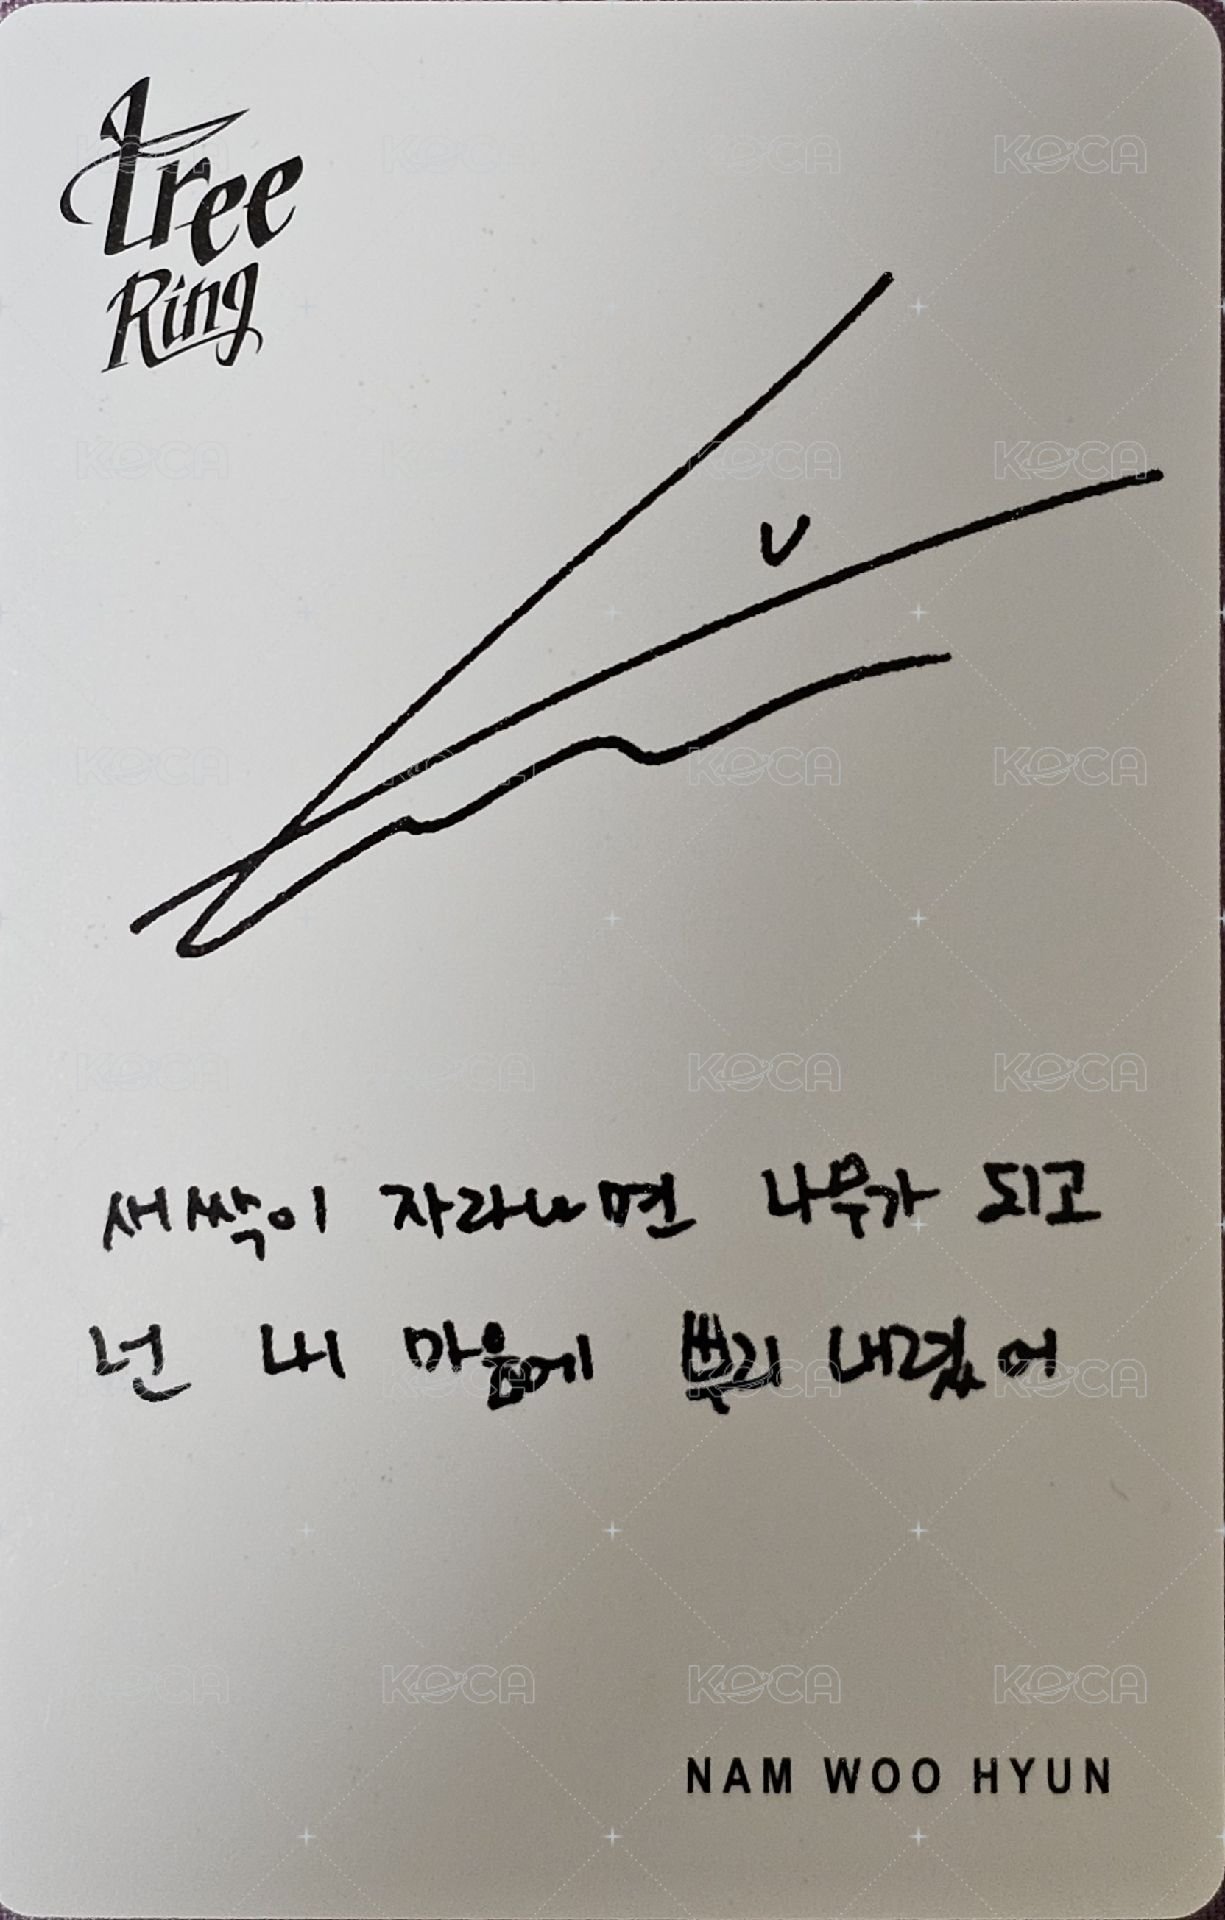 Tree
Ring
새싹이 자라나면 나무가 되고
넌 내 마음에 뿌리 내렸어
NAM WOO HYUN
KOCA